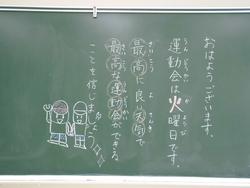 おはようございます。
運動会は火曜日です。
最高に良い天気で
最高な運動会ができる
ことを信じましょう